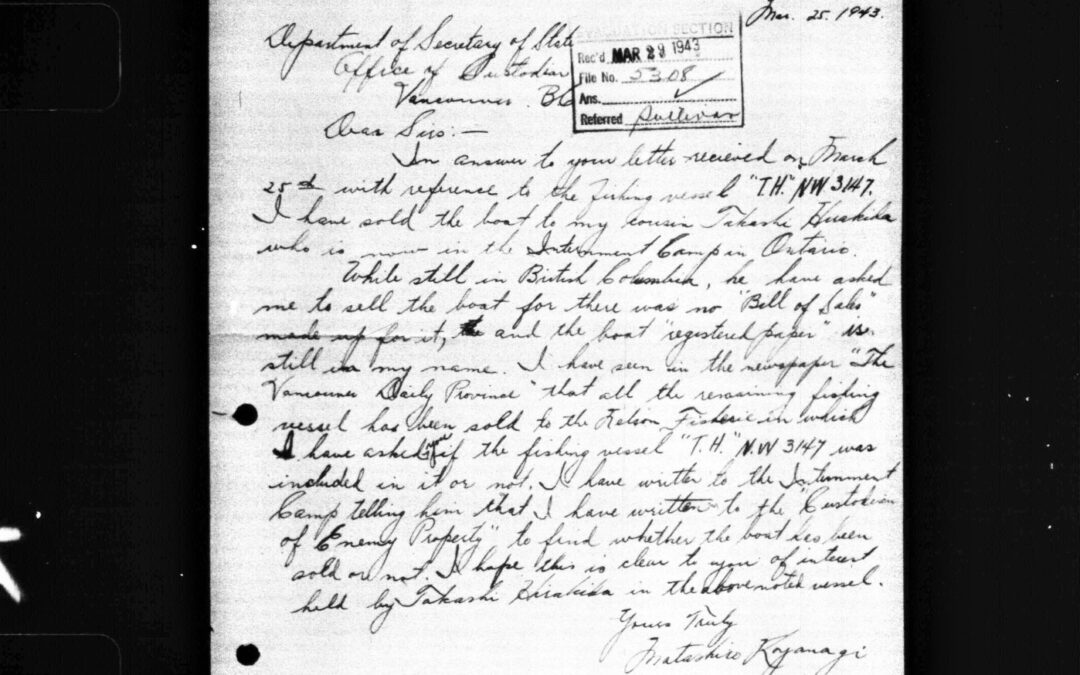 Mar. 25. 1943.
Department of Secretary of State
Office of Custodian
Vancouver. BC
EVALUATION SECTION
Rec'd MAR 29 1943
File No. 5308 ✓
Ans.
Referred Sullivan
Dear Sirs:—
In answer to your letter recieved on March
25th with reference to the fishing vessel "T.H." NW 3147.
I have sold the boat to my cousin Takashi
who is now in the Internment Camp in Ontario.
While still in British Columbia, he have asked
me to sell the boat for there was no "Bill of Sales"
made up for it, and the boat "registered paper" is
still in my name. I have seen in the newspaper "The
Vancouver Daily Province" that all the remaining fishing
vessel has been sold to the Nelson Fisherie in which
I have asked you if the fishing vessel "T.H." N.W 3147 was
included in it or not. I have writter to the Internment
Camp telling him that I have written to the "Custodian
of Enemy Property" to find whether the boat has been
sold or not. I hope this is clear to you of interest
held by Takashi Hirakida in the above noted vessel.
Yours Truly
Matashiro Koyanagi